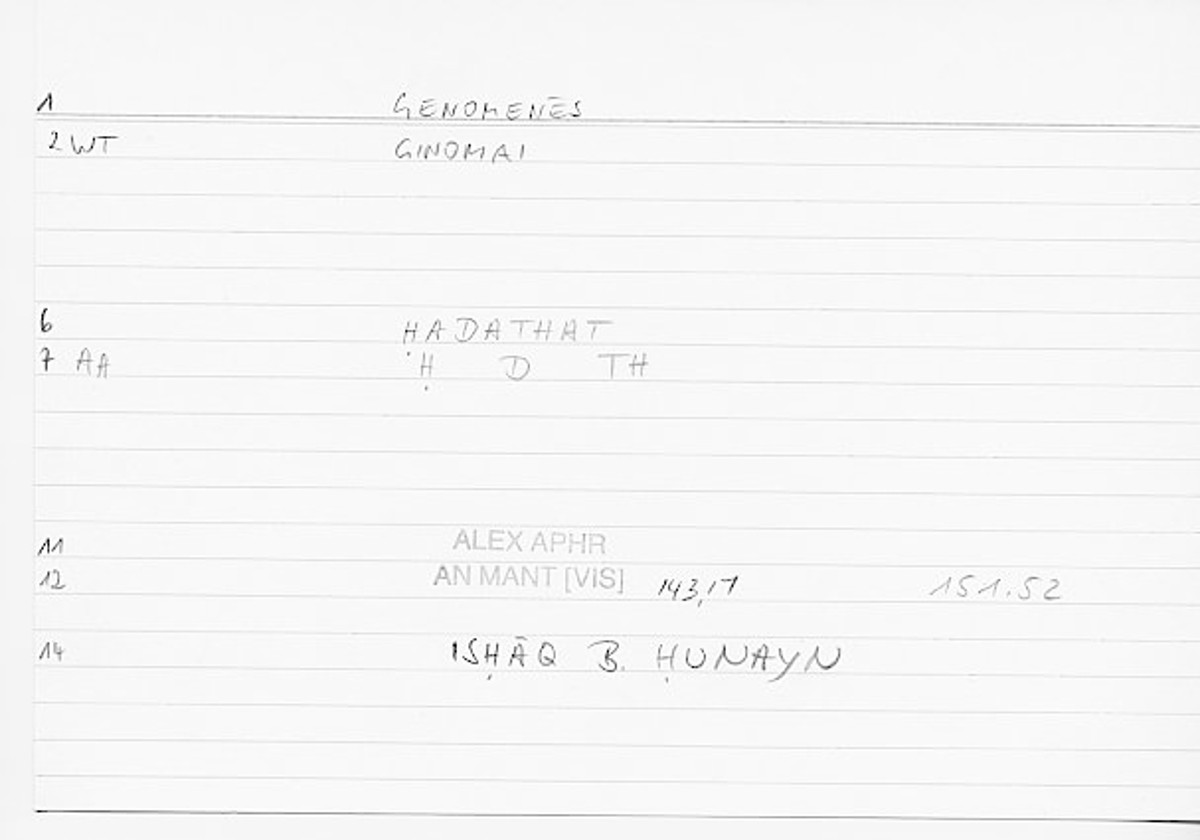 1 GENOMENĒS
2 WT GINOMAI
6 ḤADATHAT
7 AA Ḥ D TH
11 ALEX APHR
12 AN MANT [VIS] 143,17 151.52
14 ISḤĀQ B. ḤUNAYN